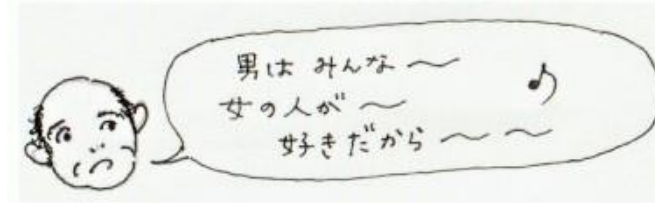 男は みんな〜
女の人が〜
好きだから〜〜